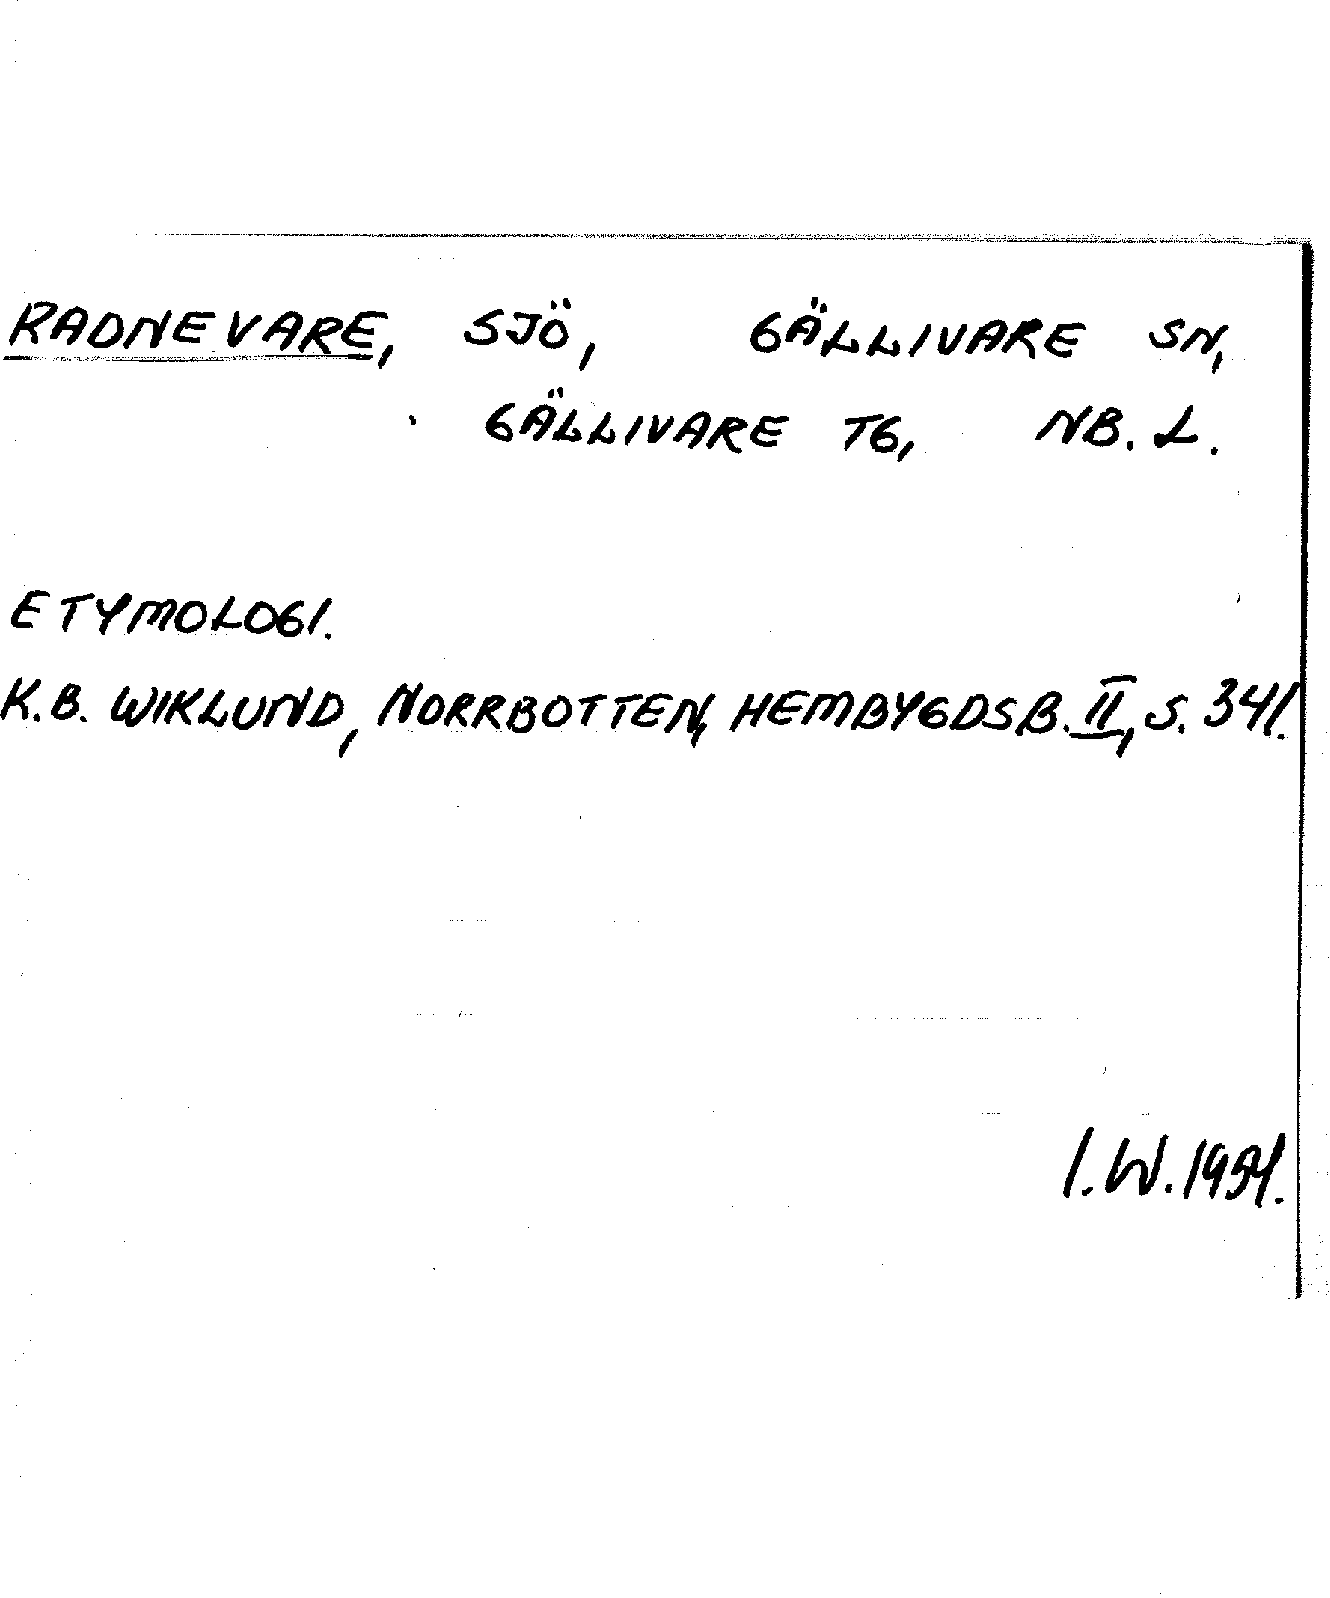 RADNEVARE, SJÖ, GÄLLIVARE SN,
GÄLLIVARE TG, NB. L.
ETYMOLOGI.
K.B. WIKLUND, NORRBOTTEN, HEMBYGDSB. II, S. 341.
I. W. 1954.